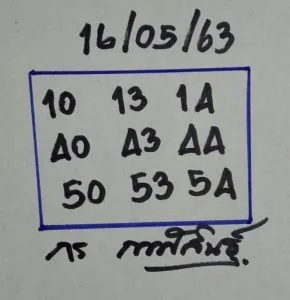 16/05/63
10 13 1A
A0 A3 AA
50 53 5A
กร กาฬสินธุ์